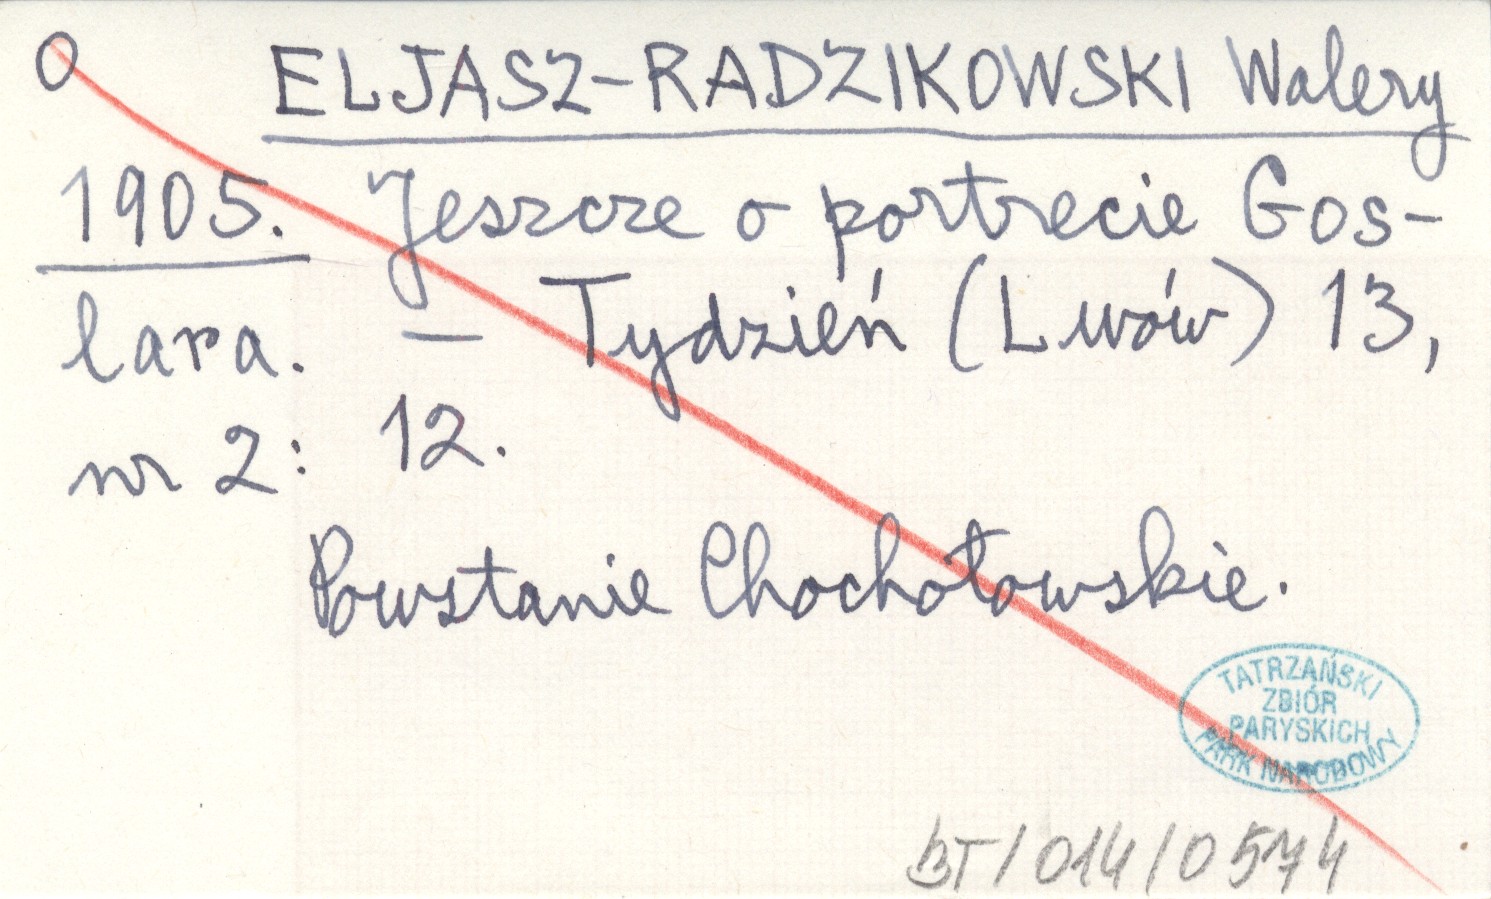 O ELJASZ-RADZIKOWSKI Walery
1905. Jeszcze o portrecie Gos-
lara. — Tydzień (Lwów) 13,
nr 2: 12.
Powstanie Chochołowskie.
TATRZAŃSKI
ZBIÓR
PARYSKICH
PARK NARODOWY
BT/014/0574